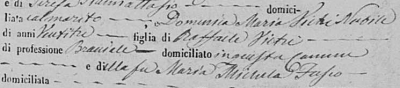 e di Teresa domici-
liata col marito, Domenica Maria Vietri Nubile
di anni Ventitre figlia di Raffaele Vietri
di professione Bracciale domiciliato in questa Comune
e della fu Maria Michela Fusco
domiciliata